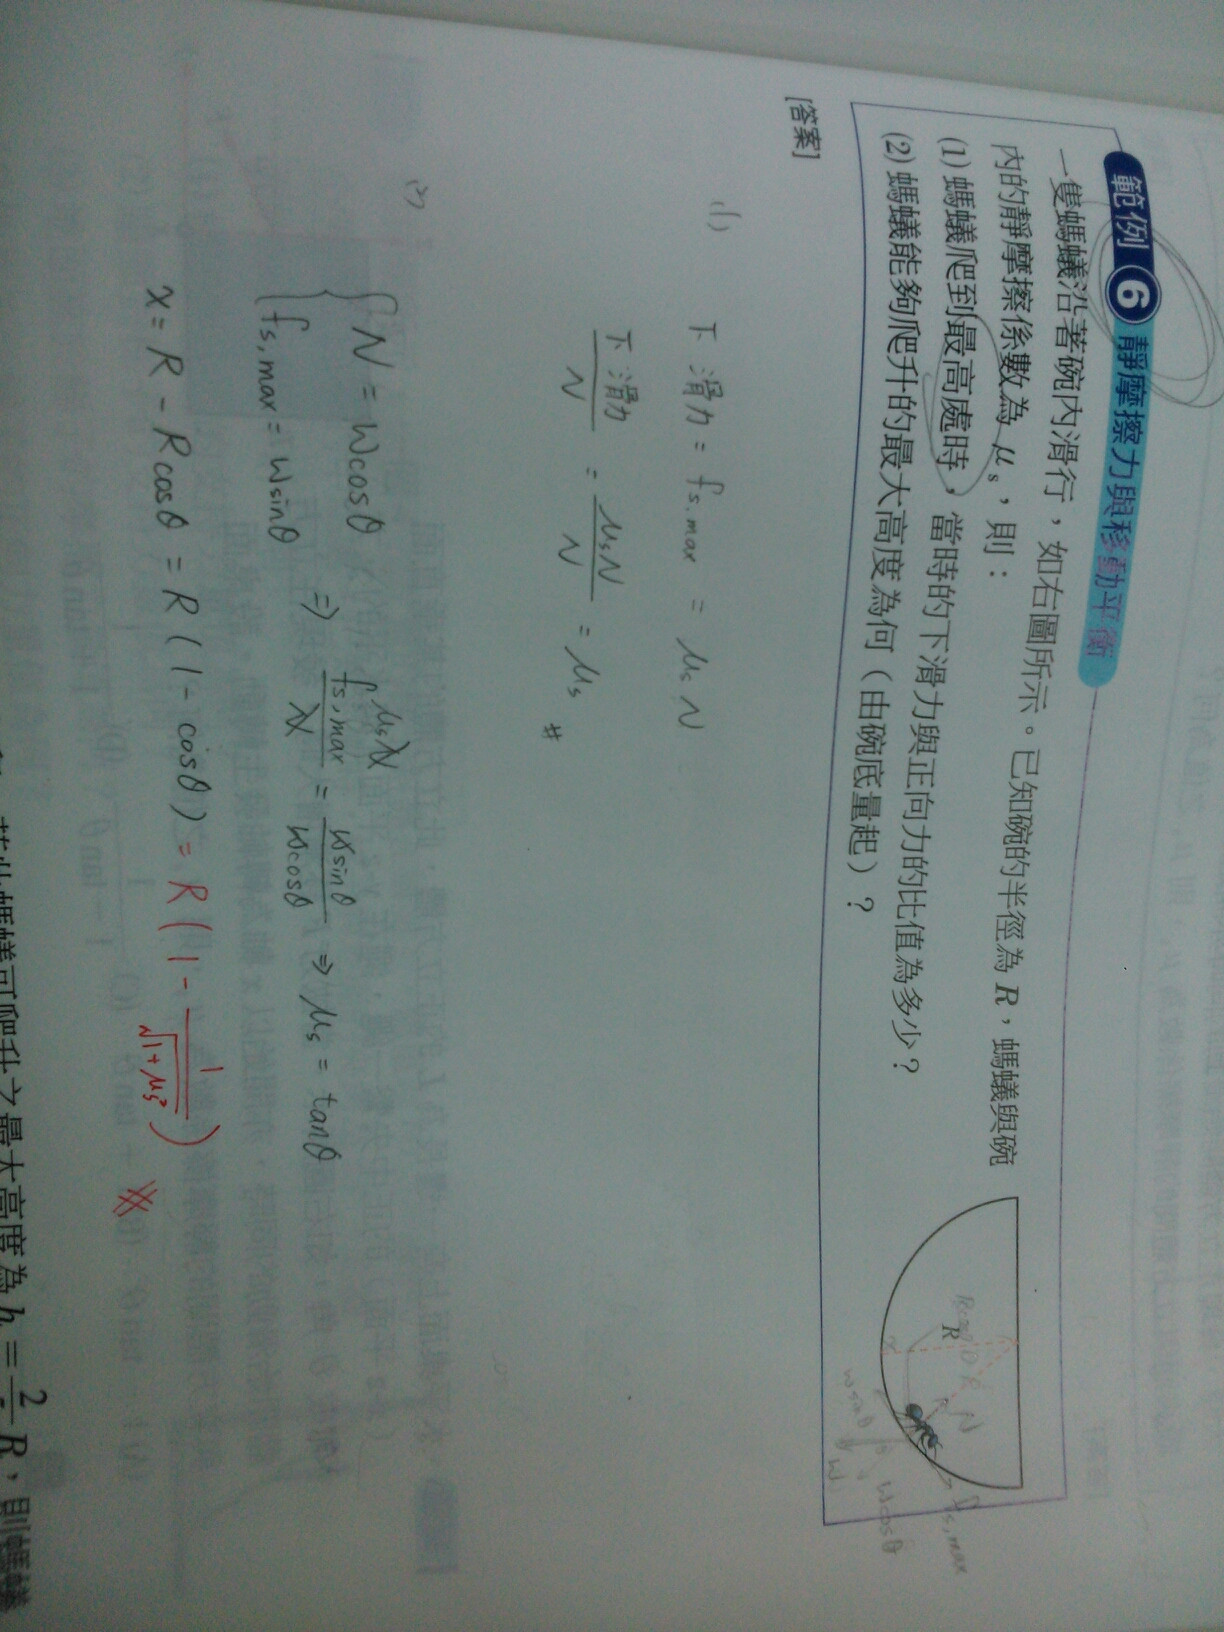 範例 6 靜摩擦力與移動平衡
一隻螞蟻沿著碗內滑行，如右圖所示。已知碗的半徑為 R，螞蟻與碗
內的靜摩擦係數為 μs，則：
(1) 螞蟻爬到最高處時，當時的下滑力與正向力的比值為多少？
(2) 螞蟻能夠爬升的最大高度為何（由碗底量起）？
R
N
fs,max
Wcosθ
Wsinθ
W
[答案]
(1)
下滑力 = fs,max = μs N
下滑力/N = μsN/N = μs #
(2)
{ N = Wcosθ
fs,max = Wsinθ
⇒ fs,max/N = Wsinθ/Wcosθ ⇒ μs = tanθ
μsN
x = R - Rcosθ = R(1-cosθ) = R(1 - 1/√(1+μs²))
螞蟻可爬升之最大高度為 h = R，則螞蟻